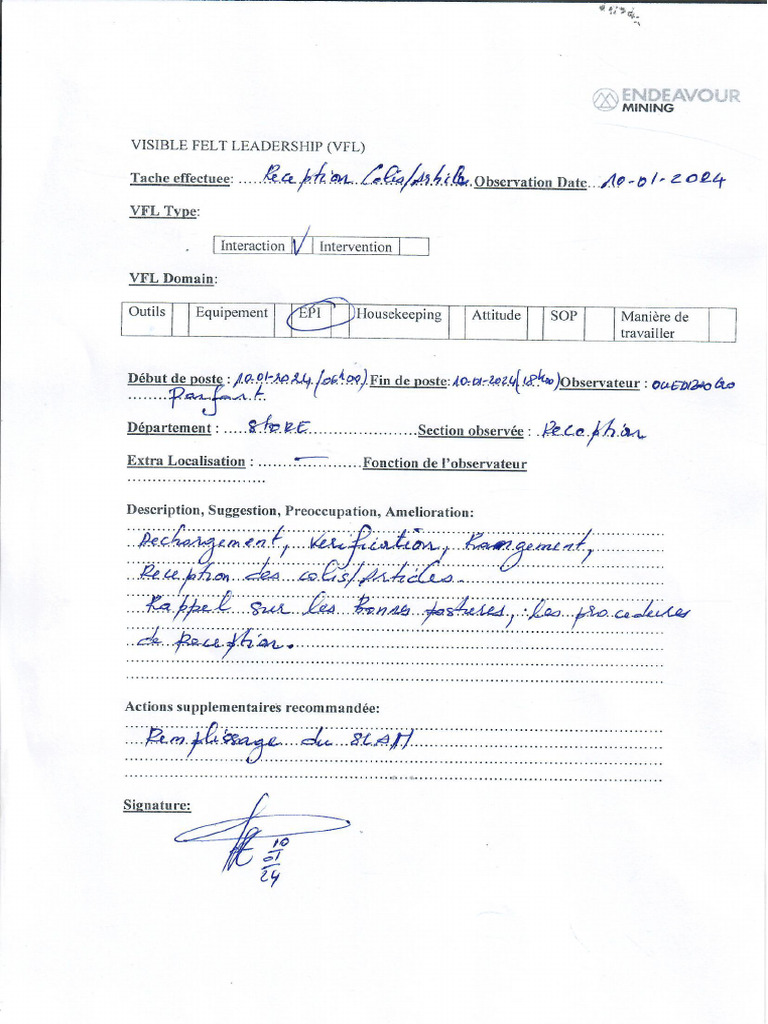 ENDEAVOUR
MINING
VISIBLE FELT LEADERSHIP (VFL)
Tache effectuee: Reception Colis/Article Observation Date 10-01-2024
VFL Type:
Interaction √ Intervention
VFL Domain:
Outils Equipement EPI Housekeeping Attitude SOP Manière de
travailler
Début de poste : 10.01.2024 (06h00) Fin de poste: 10-01-2024 (18h00) Observateur : OUEDRAOGO
Parfait
Département : STORE Section observée : Reception
Extra Localisation : — Fonction de l'observateur
Description, Suggestion, Preoccupation, Amelioration:
Dechargement, Verification, Rangement,
Reception des colis/Articles.
Rappel sur les Bonnes postures, les procedures
de Reception.
Actions supplementaires recommandée:
Remplissage du SLAM
Signature:
10
01
24